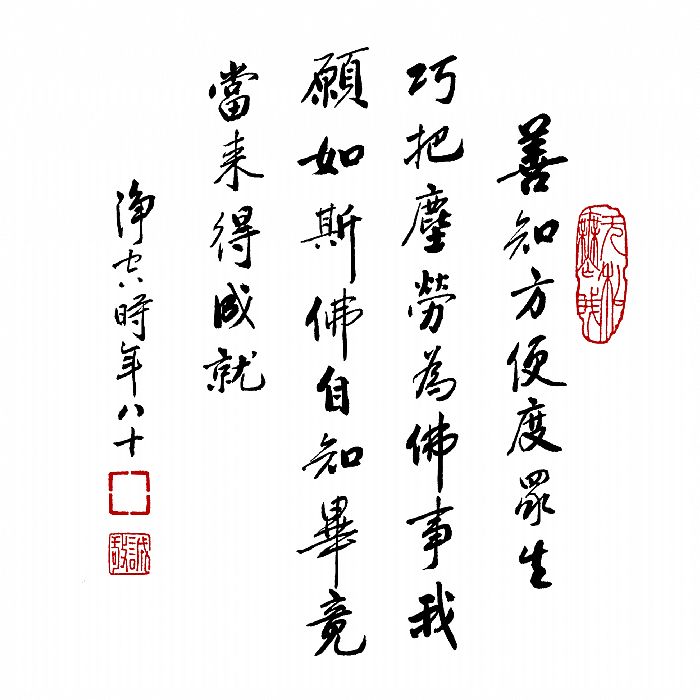 善知方便度眾生
巧把塵勞為佛事我
願如斯佛自知畢竟
當来得成就
淨空時年八十